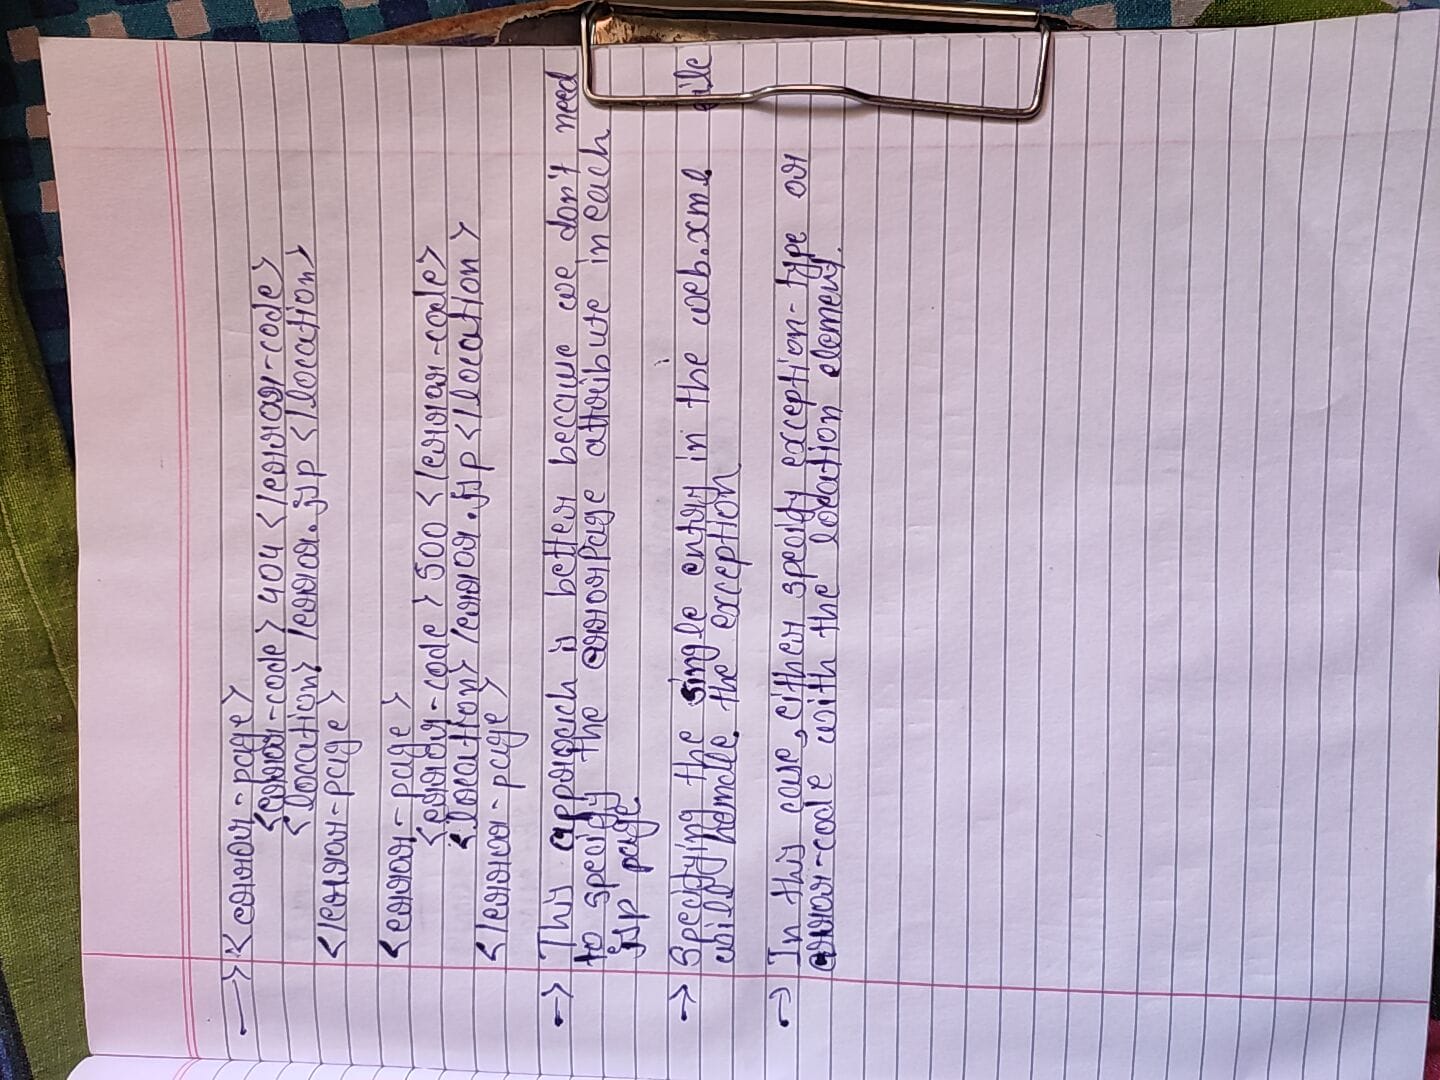 → <error-page>
<error-code> 404 </error-code>
<location> /error.jsp </location>
</error-page>
<error-page>
<error-code> 500 </error-code>
<location> /error.jsp </location>
</error-page>
→ This approach is better because we don't need
to specify the errorPage attribute in each
jsp page
→ Specifying the single entry in the web.xml file
will handle the exception
→ In this case, either specify exception-type or
error-code with the location element.